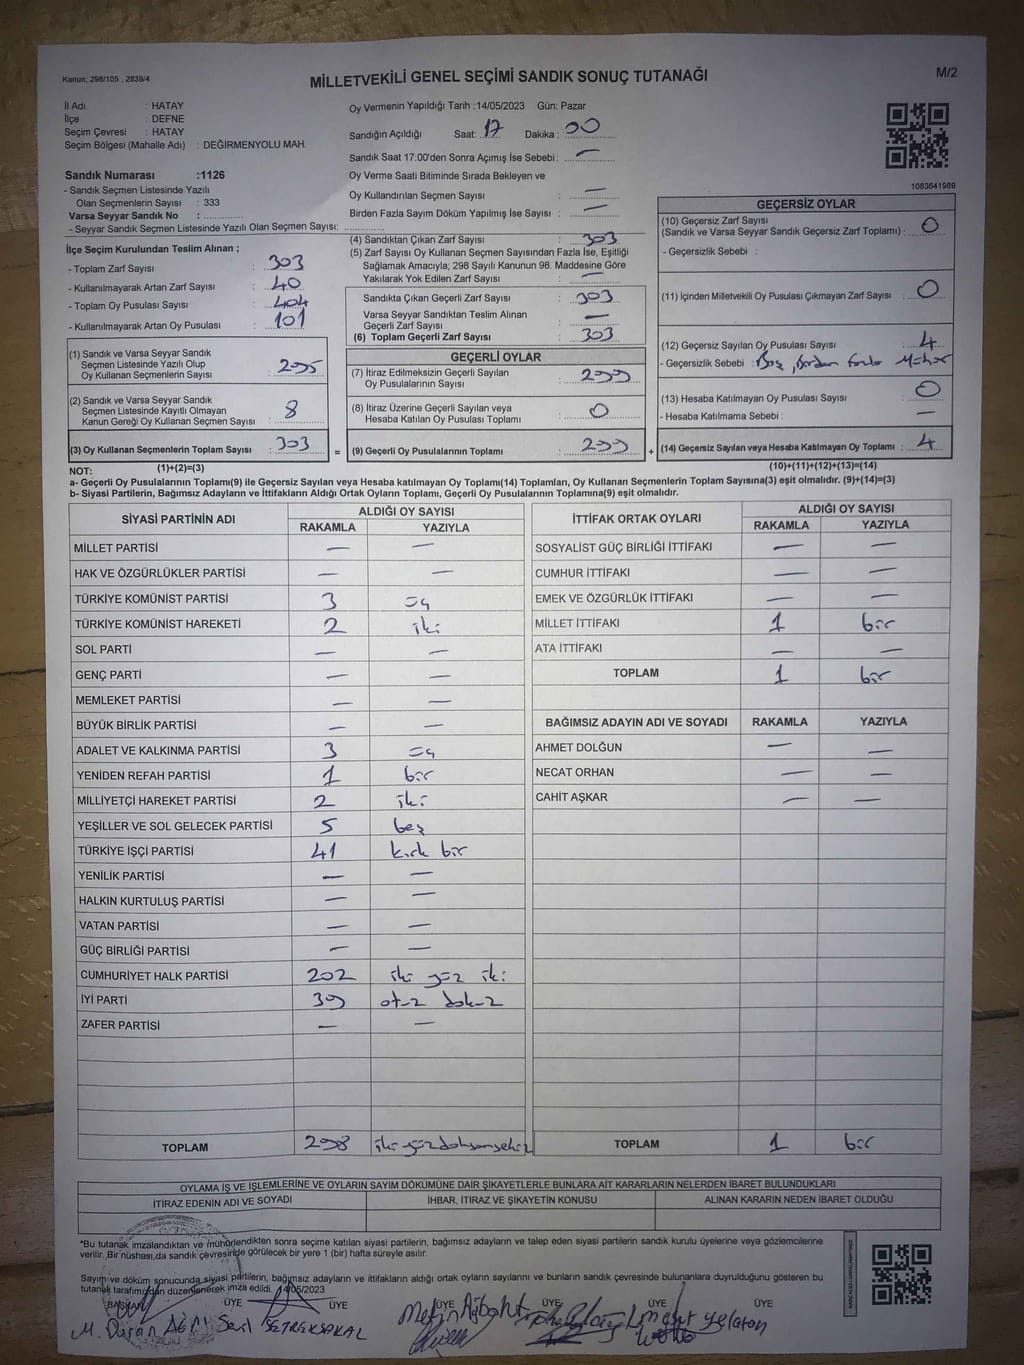 Kanun; 298/105 , 2839/4
MİLLETVEKİLİ GENEL SEÇİMİ SANDIK SONUÇ TUTANAĞI
M/2
İl Adı : HATAY
İlçe : DEFNE
Seçim Çevresi : HATAY
Seçim Bölgesi (Mahalle Adı) : DEĞİRMENYOLU MAH.
Oy Vermenin Yapıldığı Tarih :14/05/2023 Gün: Pazar
Sandığın Açıldığı Saat: 17 Dakika : 00
Sandık Saat 17:00'den Sonra Açımış İse Sebebi: —
Oy Verme Saati Bitiminde Sırada Bekleyen ve
Oy Kullandırılan Seçmen Sayısı —
Birden Fazla Sayım Döküm Yapılmış İse Sayısı : —
1083641989
Sandık Numarası :1126
- Sandık Seçmen Listesinde Yazılı
Olan Seçmenlerin Sayısı : 333
Varsa Seyyar Sandık No :
- Seyyar Sandık Seçmen Listesinde Yazılı Olan Seçmen Sayısı:
İlçe Seçim Kurulundan Teslim Alınan ;
- Toplam Zarf Sayısı : 303
- Kullanılmayarak Artan Zarf Sayısı : 40
- Toplam Oy Pusulası Sayısı : 404
- Kullanılmayarak Artan Oy Pusulası : 101
(1) Sandık ve Varsa Seyyar Sandık
Seçmen Listesinde Yazılı Olup
Oy Kullanan Seçmenlerin Sayısı : 295
(2) Sandık ve Varsa Seyyar Sandık
Seçmen Listesinde Kayıtlı Olmayan
Kanun Gereği Oy Kullanan Seçmen Sayısı : 8
(3) Oy Kullanan Seçmenlerin Toplam Sayısı : 303
(4) Sandıktan Çıkan Zarf Sayısı : 303
(5) Zarf Sayısı Oy Kullanan Seçmen Sayısından Fazla İse, Eşitliği
Sağlamak Amacıyla; 298 Sayılı Kanunun 98. Maddesine Göre
Yakılarak Yok Edilen Zarf Sayısı : —
Sandıkta Çıkan Geçerli Zarf Sayısı : 303
Varsa Seyyar Sandıktan Teslim Alınan
Geçerli Zarf Sayısı : —
(6) Toplam Geçerli Zarf Sayısı : 303
GEÇERLİ OYLAR
(7) İtiraz Edilmeksizin Geçerli Sayılan
Oy Pusulalarının Sayısı : 299
(8) İtiraz Üzerine Geçerli Sayılan veya
Hesaba Katılan Oy Pusulası Toplamı : 0
= (9) Geçerli Oy Pusulalarının Toplamı : 299 +
GEÇERSİZ OYLAR
(10) Geçersiz Zarf Sayısı
(Sandık ve Varsa Seyyar Sandık Geçersiz Zarf Toplamı) : 0
- Geçersizlik Sebebi :
(11) İçinden Milletvekili Oy Pusulası Çıkmayan Zarf Sayısı : 0
(12) Geçersiz Sayılan Oy Pusulası Sayısı : 4
- Geçersizlik Sebebi : Boş, Birden fazla Mühür
(13) Hesaba Katılmayan Oy Pusulası Sayısı : 0
- Hesaba Katılmama Sebebi : —
(14) Geçersiz Sayılan veya Hesaba Katılmayan Oy Toplamı : 4
NOT: (1)+(2)=(3) (10)+(11)+(12)+(13)=(14)
a- Geçerli Oy Pusulalarının Toplamı(9) ile Geçersiz Sayılan veya Hesaba katılmayan Oy Toplamı(14) Toplamları, Oy Kullanan Seçmenlerin Toplam Sayısına(3) eşit olmalıdır. (9)+(14)=(3)
b- Siyasi Partilerin, Bağımsız Adayların ve İttifakların Aldığı Ortak Oyların Toplamı, Geçerli Oy Pusulalarının Toplamına(9) eşit olmalıdır.
SİYASİ PARTİNİN ADI ALDIĞI OY SAYISI
RAKAMLA YAZIYLA
MİLLET PARTİSİ — —
HAK VE ÖZGÜRLÜKLER PARTİSİ — —
TÜRKİYE KOMÜNİST PARTİSİ 3 üç
TÜRKİYE KOMÜNİST HAREKETİ 2 iki
SOL PARTİ — —
GENÇ PARTİ — —
MEMLEKET PARTİSİ — —
BÜYÜK BİRLİK PARTİSİ — —
ADALET VE KALKINMA PARTİSİ 3 üç
YENİDEN REFAH PARTİSİ 1 bir
MİLLİYETÇİ HAREKET PARTİSİ 2 iki
YEŞİLLER VE SOL GELECEK PARTİSİ 5 beş
TÜRKİYE İŞÇİ PARTİSİ 41 kırk bir
YENİLİK PARTİSİ — —
HALKIN KURTULUŞ PARTİSİ — —
VATAN PARTİSİ — —
GÜÇ BİRLİĞİ PARTİSİ — —
CUMHURİYET HALK PARTİSİ 202 iki yüz iki
İYİ PARTİ 39 otuz dokuz
ZAFER PARTİSİ — —
TOPLAM 298 iki yüz doksan sekiz
İTTİFAK ORTAK OYLARI ALDIĞI OY SAYISI
RAKAMLA YAZIYLA
SOSYALİST GÜÇ BİRLİĞİ İTTİFAKI — —
CUMHUR İTTİFAKI — —
EMEK VE ÖZGÜRLÜK İTTİFAKI — —
MİLLET İTTİFAKI 1 bir
ATA İTTİFAKI — —
TOPLAM 1 bir
BAĞIMSIZ ADAYIN ADI VE SOYADI RAKAMLA YAZIYLA
AHMET DOLĞUN — —
NECAT ORHAN — —
CAHİT AŞKAR — —
TOPLAM 1 bir
OYLAMA İŞ VE İŞLEMLERİNE VE OYLARIN SAYIM DÖKÜMÜNE DAİR ŞİKAYETLERLE BUNLARA AİT KARARLARIN NELERDEN İBARET BULUNDUKLARI
İTİRAZ EDENİN ADI VE SOYADI İHBAR, İTİRAZ VE ŞİKAYETİN KONUSU ALINAN KARARIN NEDEN İBARET OLDUĞU
*Bu tutanak imzalandıktan ve mühürlendikten sonra seçime katılan siyasi partilerin, bağımsız adayların ve talep eden siyasi partilerin sandık kurulu üyelerine veya gözlemcilerine
verilir. Bir nüshası,da sandık çevresinde görülecek bir yere 1 (bir) hafta süreyle asılır.
Sayım ve döküm sonucunda siyasi partilerin, bağımsız adayların ve ittifakların aldığı ortak oyların sayılarını ve bunların sandık çevresinde bulunanlara duyrulduğunu gösteren bu
tutanak tarafımızdan düzenlenerek imza edildi. 14/05/2023
BAŞKAN ÜYE ÜYE ÜYE ÜYE ÜYE ÜYE
M. Duran